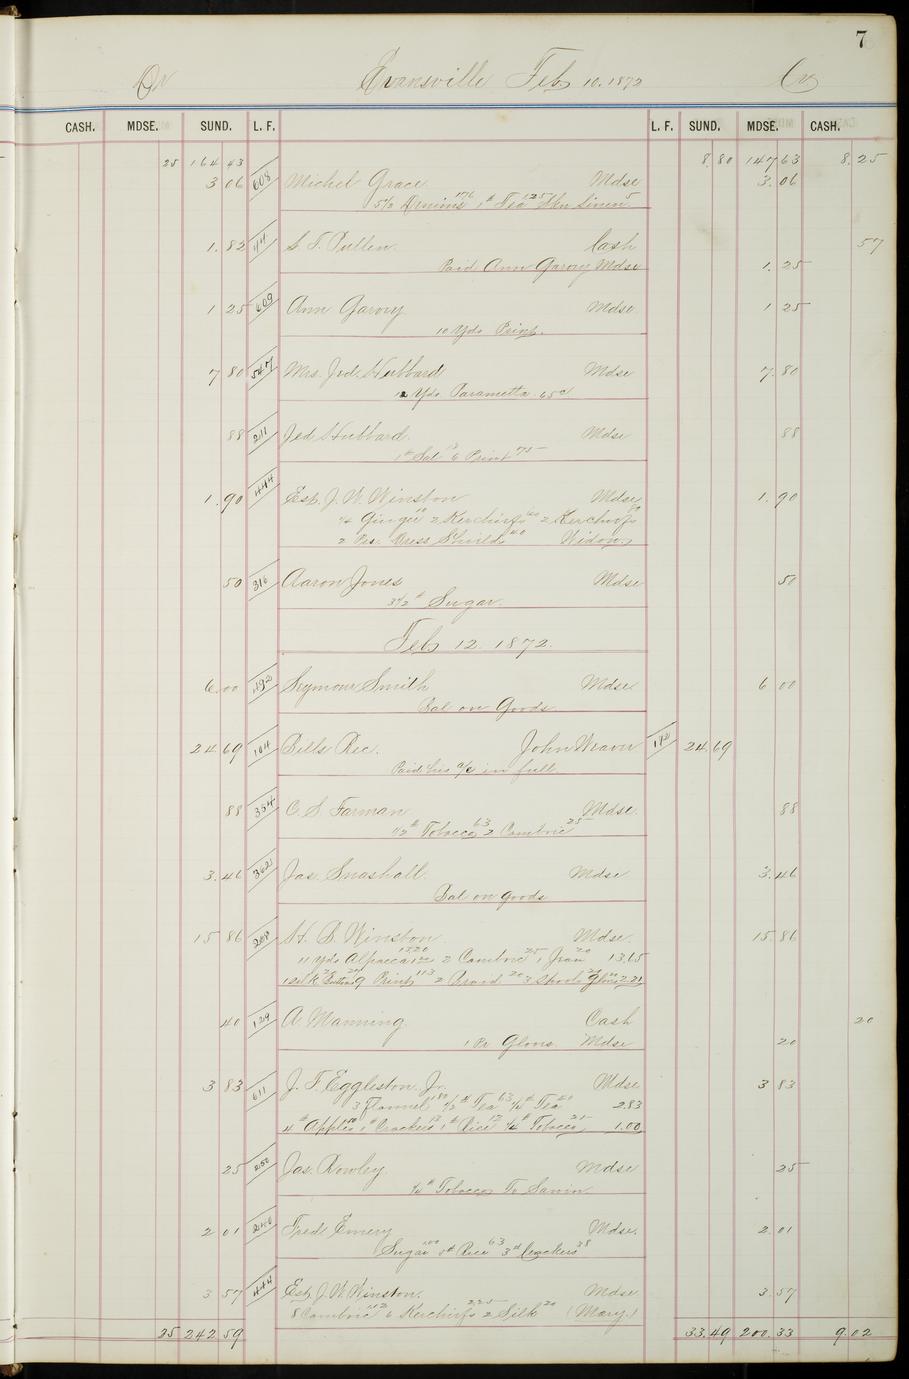 7
Dr Evansville Feb 10. 1872 Cr
CASH. MDSE. SUND. L. F. L. F. SUND. MDSE. CASH.
25 164 43 8 80 147 63 8. 25
3 06 608 Michel Grace Mdse 3. 06
5 1/2 Denims 176 1 # Tea 125 Hkn Linen 5
1. 82 44 S. T. Pullen. Cash 57
Paid Ann Garory Mdse 1. 25
1 25 609 Ann Garory Mdse 1 25
10 Yds Print.
7 80 547 Mrs. Jed. Hubbard Mdse 7. 80
12 Yds Paramatta 65c
88 211 Jed Hubbard. Mdse 88
1 # Sal 13 6 Print 75
1. 90 444 Est. J. W. Winston Mdse 1. 90
1/4 Ginger 10 2 Kerchiefs 60 2 Kerchiefs 80
2 Prs. Dress Shields 40 Widow.)
50 316 Aaron Jones Mdse 50
3 1/2 # Sugar.
Feb 12. 1872.
6. 00 492 Seymour Smith Mdse 6 00
Bal on Goods
24 69 164 Bills Rec. John Weaver 172 24. 69
Paid his a/c in full
88 354 C. S. Farman Mdse. 88
1/2 # Tobacco 63 2 Cambric 25
3. 46 362 Jas. Snashall. Mdse 3. 46
Bal on goods
15 86 208 H. B. Winston Mdse. 15. 86
11 Yds Alpacca 1320 2 Cambric 25 1 Jean 20 13.65
1 Silk 20 Buttons 9 Print 113 2 Braid 20 3 Spools 24 Gloves 2.21
40 129 A. Manning. Cash 20
1 Pr Gloves. Mdse 20
3 83 611 J. T. Eggleston Jr. Mdse 3 83
3 Flannel 180 1/2 # Tea 63 1/4 # Tea 40 2.83
4 # Apples 50 1 # Crackers 13 1 # Rice 12 1/4 # Tobacco 25 1.00
25 250 Jas. Rowley. Mdse 25
1/4 # Tobacco To Savin.
2 01 Fred Emery Mdse. 2. 01
Sugar 100 5 # Rice 63 3 # Crackers 38
3 57 444 Est. J. W. Winston. Mdse 3. 57
8 Cambric 112 6 Kerchiefs 225 2 Silk 20 (Mary.)
25 242 59 33. 49 200. 33 9. 02